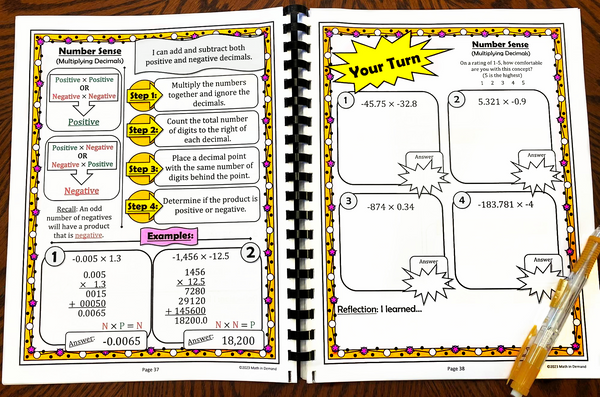 Number Sense
(Multiplying Decimals)
Positive × Positive
OR
Negative × Negative
Positive
Positive × Negative
OR
Negative × Positive
Negative
Recall: An odd
number of negatives
will have a product
that is negative.
I can add and subtract both
positive and negative decimals.
Step 1:
Multiply the numbers
together and ignore the
decimals.
Step 2:
Count the total number
of digits to the right of
each decimal.
Step 3:
Place a decimal point
with the same number of
digits behind the point.
Step 4:
Determine if the product is
positive or negative.
Examples:
1
-0.005 × 1.3
0.005
× 1.3
0015
+ 00050
0.0065
N × P = N
Answer:
-0.0065
2
-1,456 × -12.5
1456
× 12.5
7280
29120
+ 145600
18200.0
N × N = P
Answer:
18,200
Page 37
©2023 Math in Demand
Your Turn
Number Sense
(Multiplying Decimals)
On a rating of 1-5, how comfortable
are you with this concept?
(5 is the highest)
1 2 3 4 5
1
-45.75 × -32.8
Answer
2
5.321 × -0.9
Answer
3
-874 × 0.34
Answer
4
-183.781 × -4
Answer
Reflection: I learned...
Page 38
©2023 Math in Demand